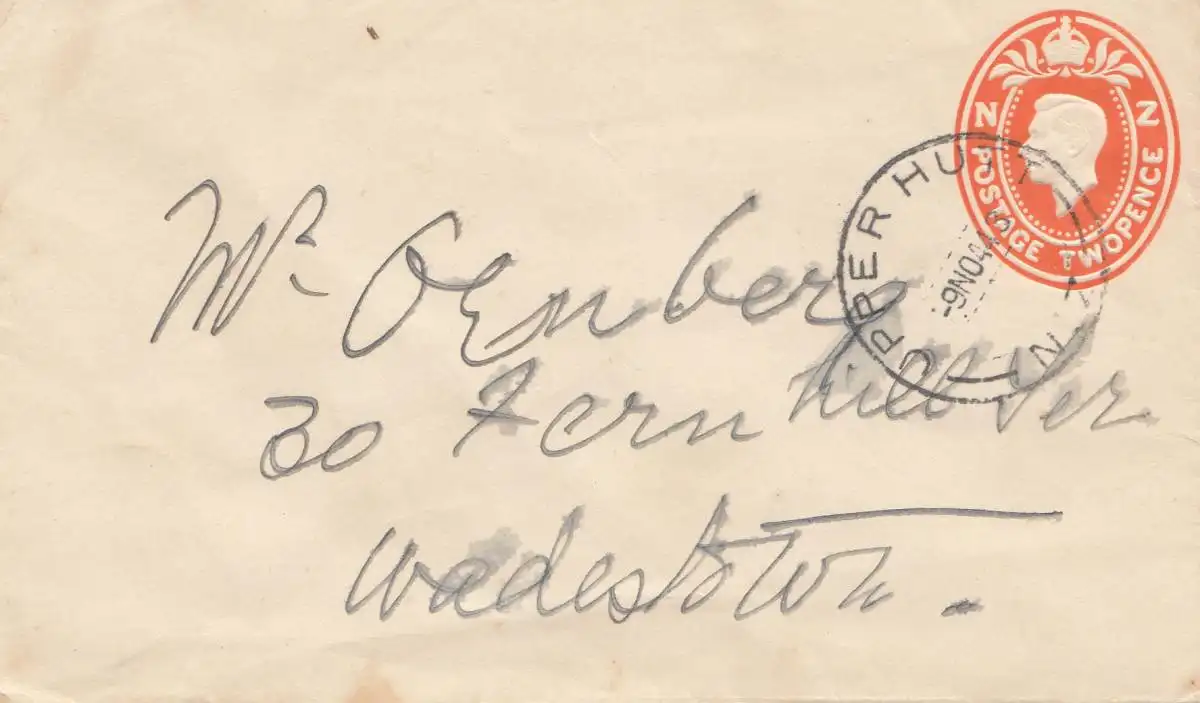 N Z
POSTAGE TWOPENCE
UPPER HUTT
N.Z.
-9NO44
Mr. Oenberg
30 Fernhill Ter
Wadestown.